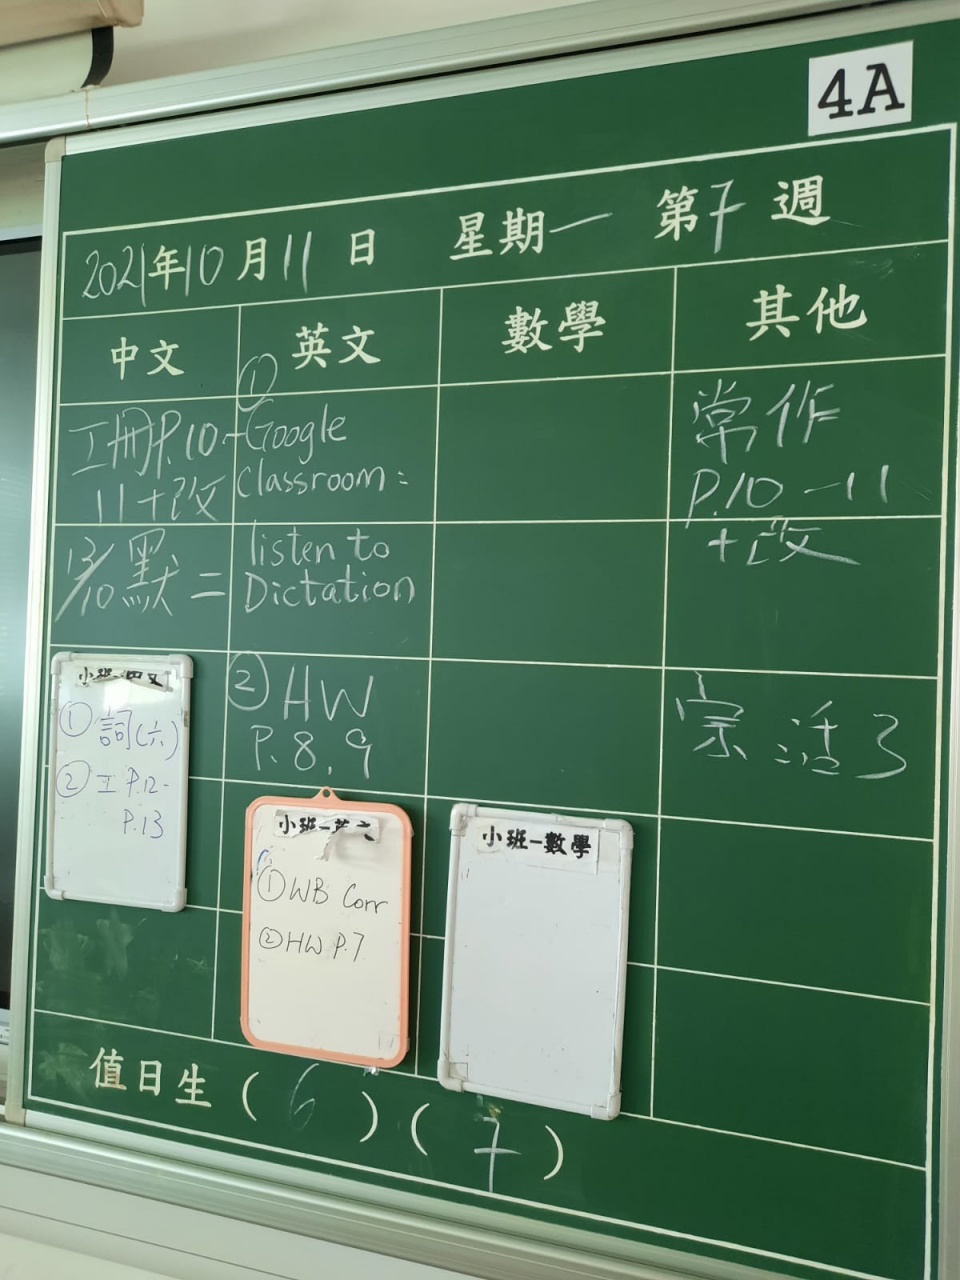 4A
2021年10月11日 星期一 第7週
中文
英文
數學
其他
工冊P.10-
11+改
13/10 默二
①
Google
Classroom:
listen to
Dictation
②HW
P.8, 9
常作
P.10-11
+改
宗:活3
小班-中文
①詞(六)
②工P.12-
P.13
小班-英文
①WB Corr
②HW P.7
小班-數學
值日生(6)(7)